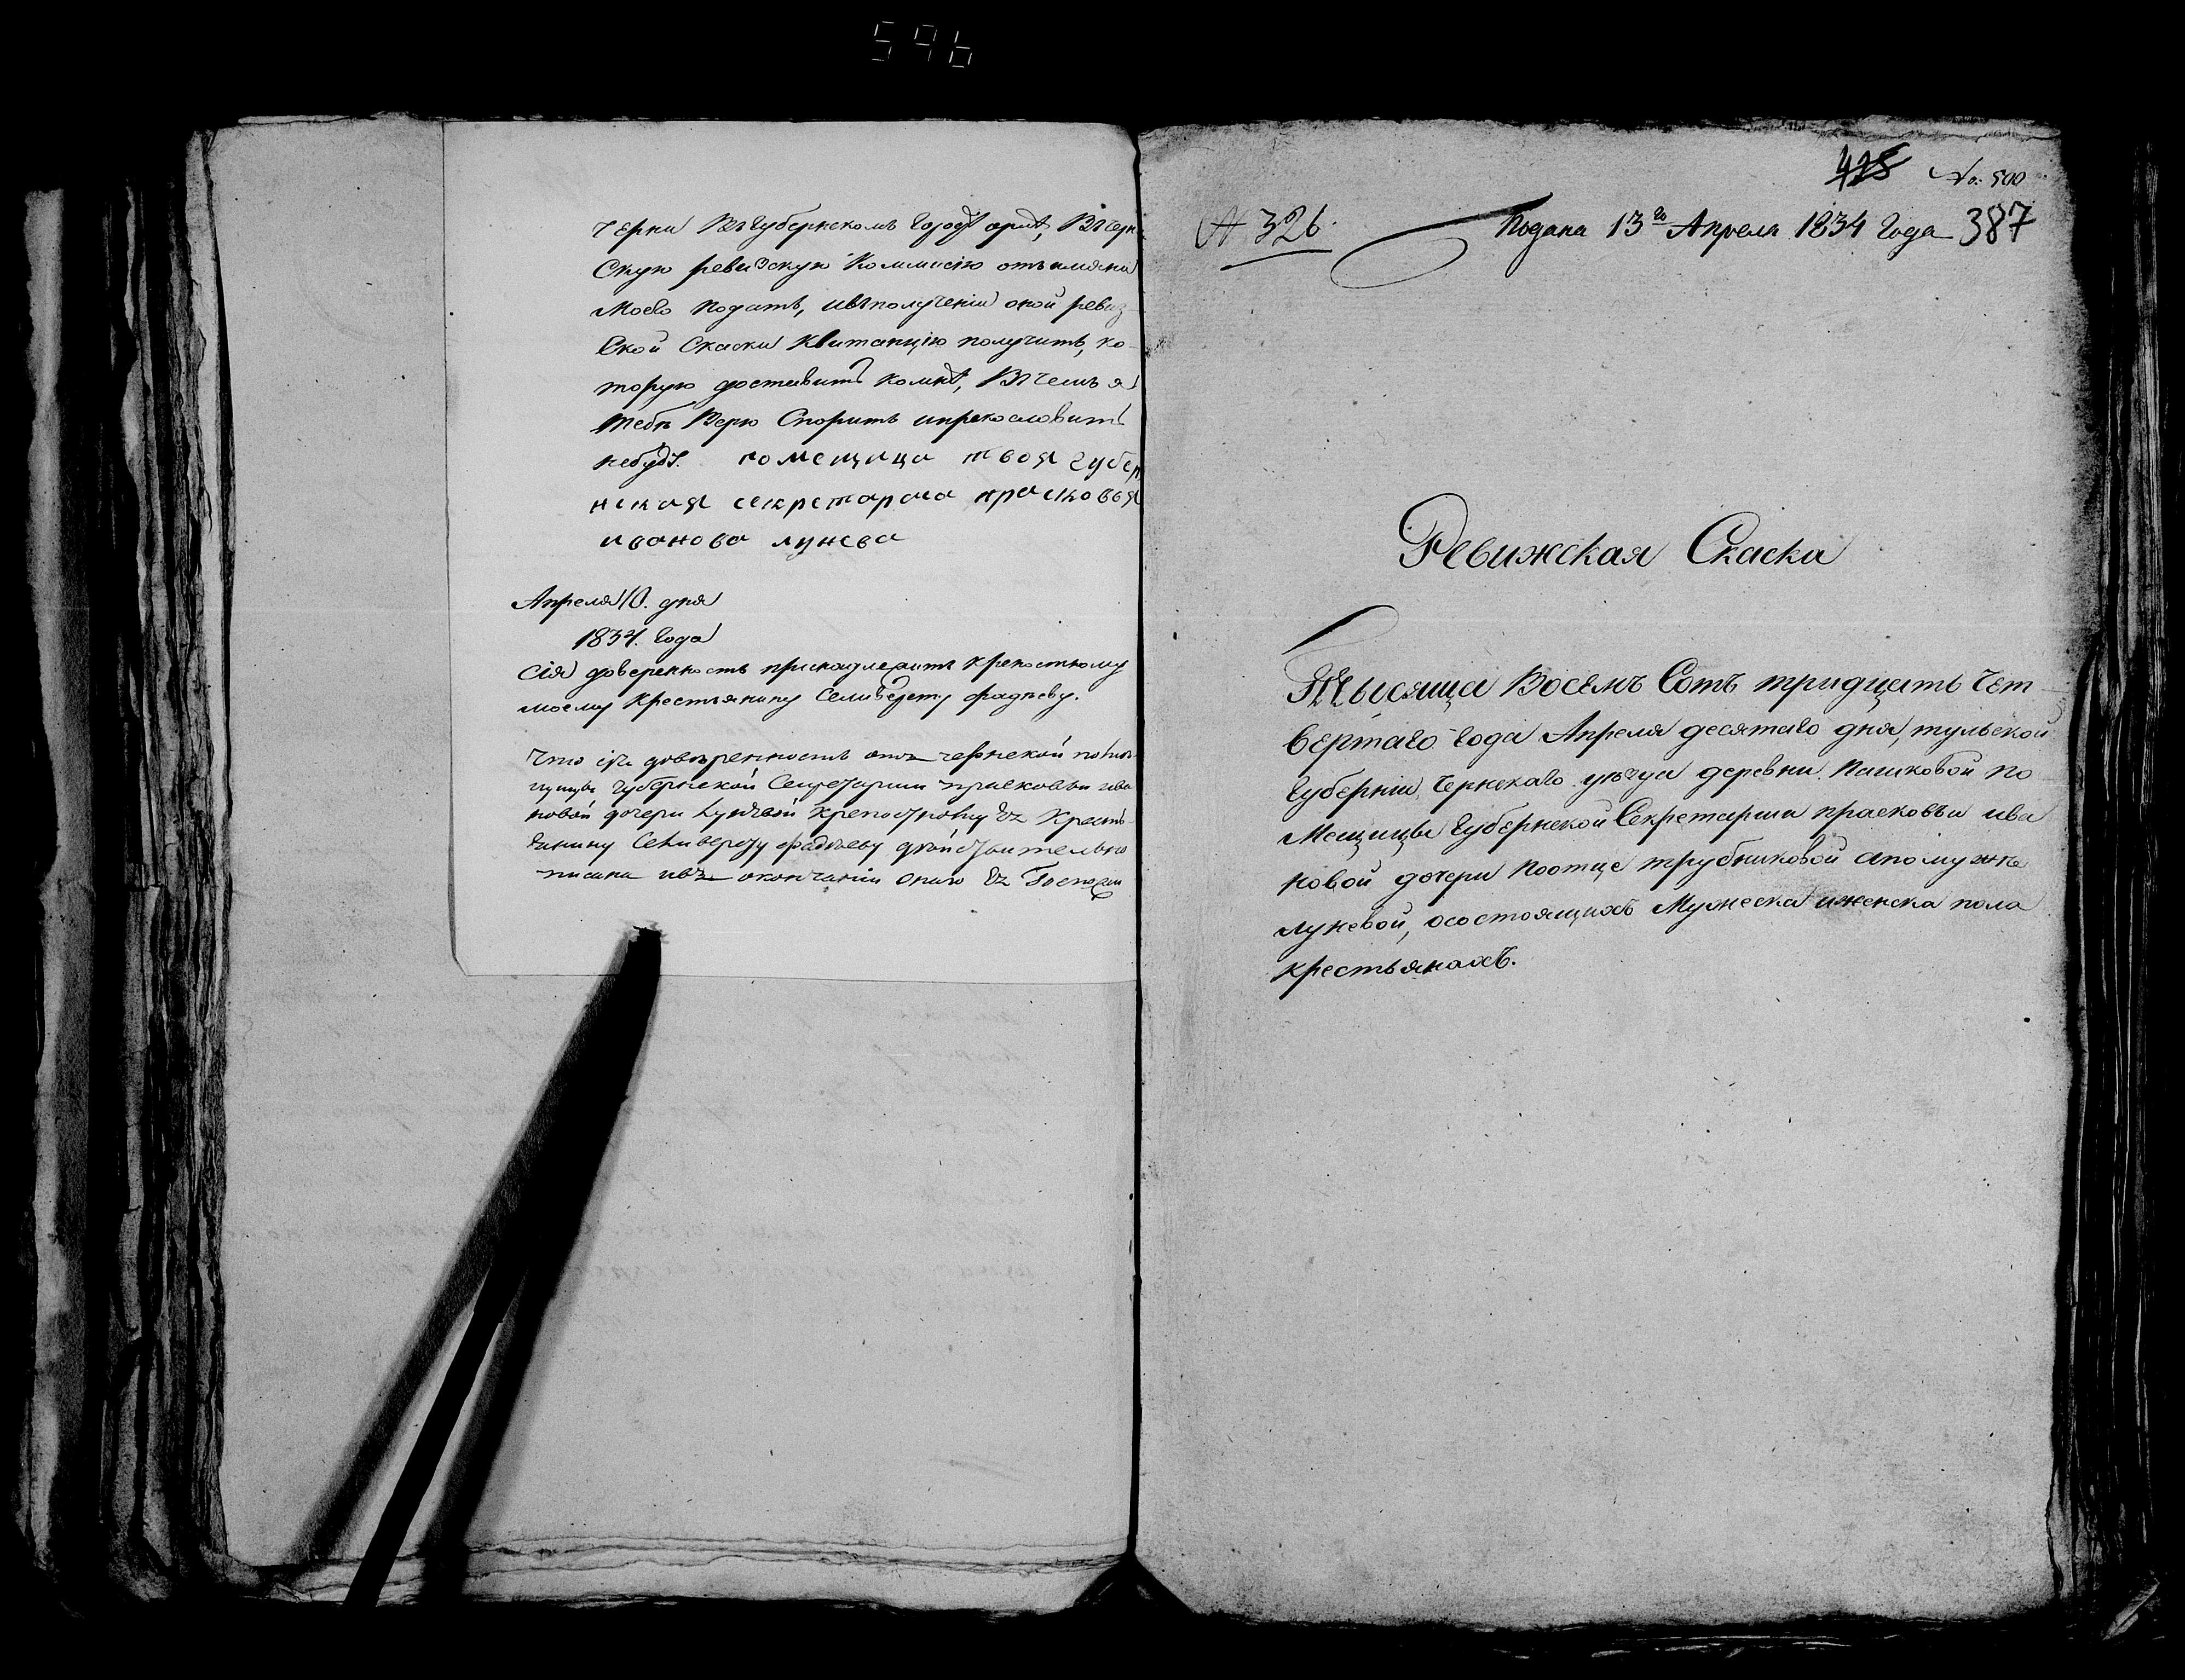 596
Черни
Скую ревизскую Коммисію отъ имяни
Моего подать, ивполученіи оной ревиз
Ской Скаски Квитанцію получить, ко
торую доставить комнѣ, Вчемъ я
тебѣ Верю Спорить ипрекословить
небуду. помещица твоя губер
нская секретарша прасковья
иванова лунева
Апреля 10. дня
1834. года
сія доверенность принадлежитъ крепостному
моему крестьянину Селиверсту фадѣеву.
Что сія доверенность отъ чернской помѣ
щицы губернской Секретарши прасковьи ива
новой дочери Луневой крепостному Ея Кресть
янину Селиверсту фадѣеву дѣйствительно
писана
428 No: 500
№ 326. Подана 13го Апреля 1834 Года 387
Ревижская Скаска
Тысяща Восемь Сотъ тридцать чет
вертаго года Апреля десятаго дня, тульской
губерніи, чернскаго уѣзда деревни Пашковой по
Мещицы Губернской Секретарши прасковьи ива
новой дочери поотце трубниковой апомужѣ
луневой, осостоящихъ Мужеска иженска пола
крестьянахъ.